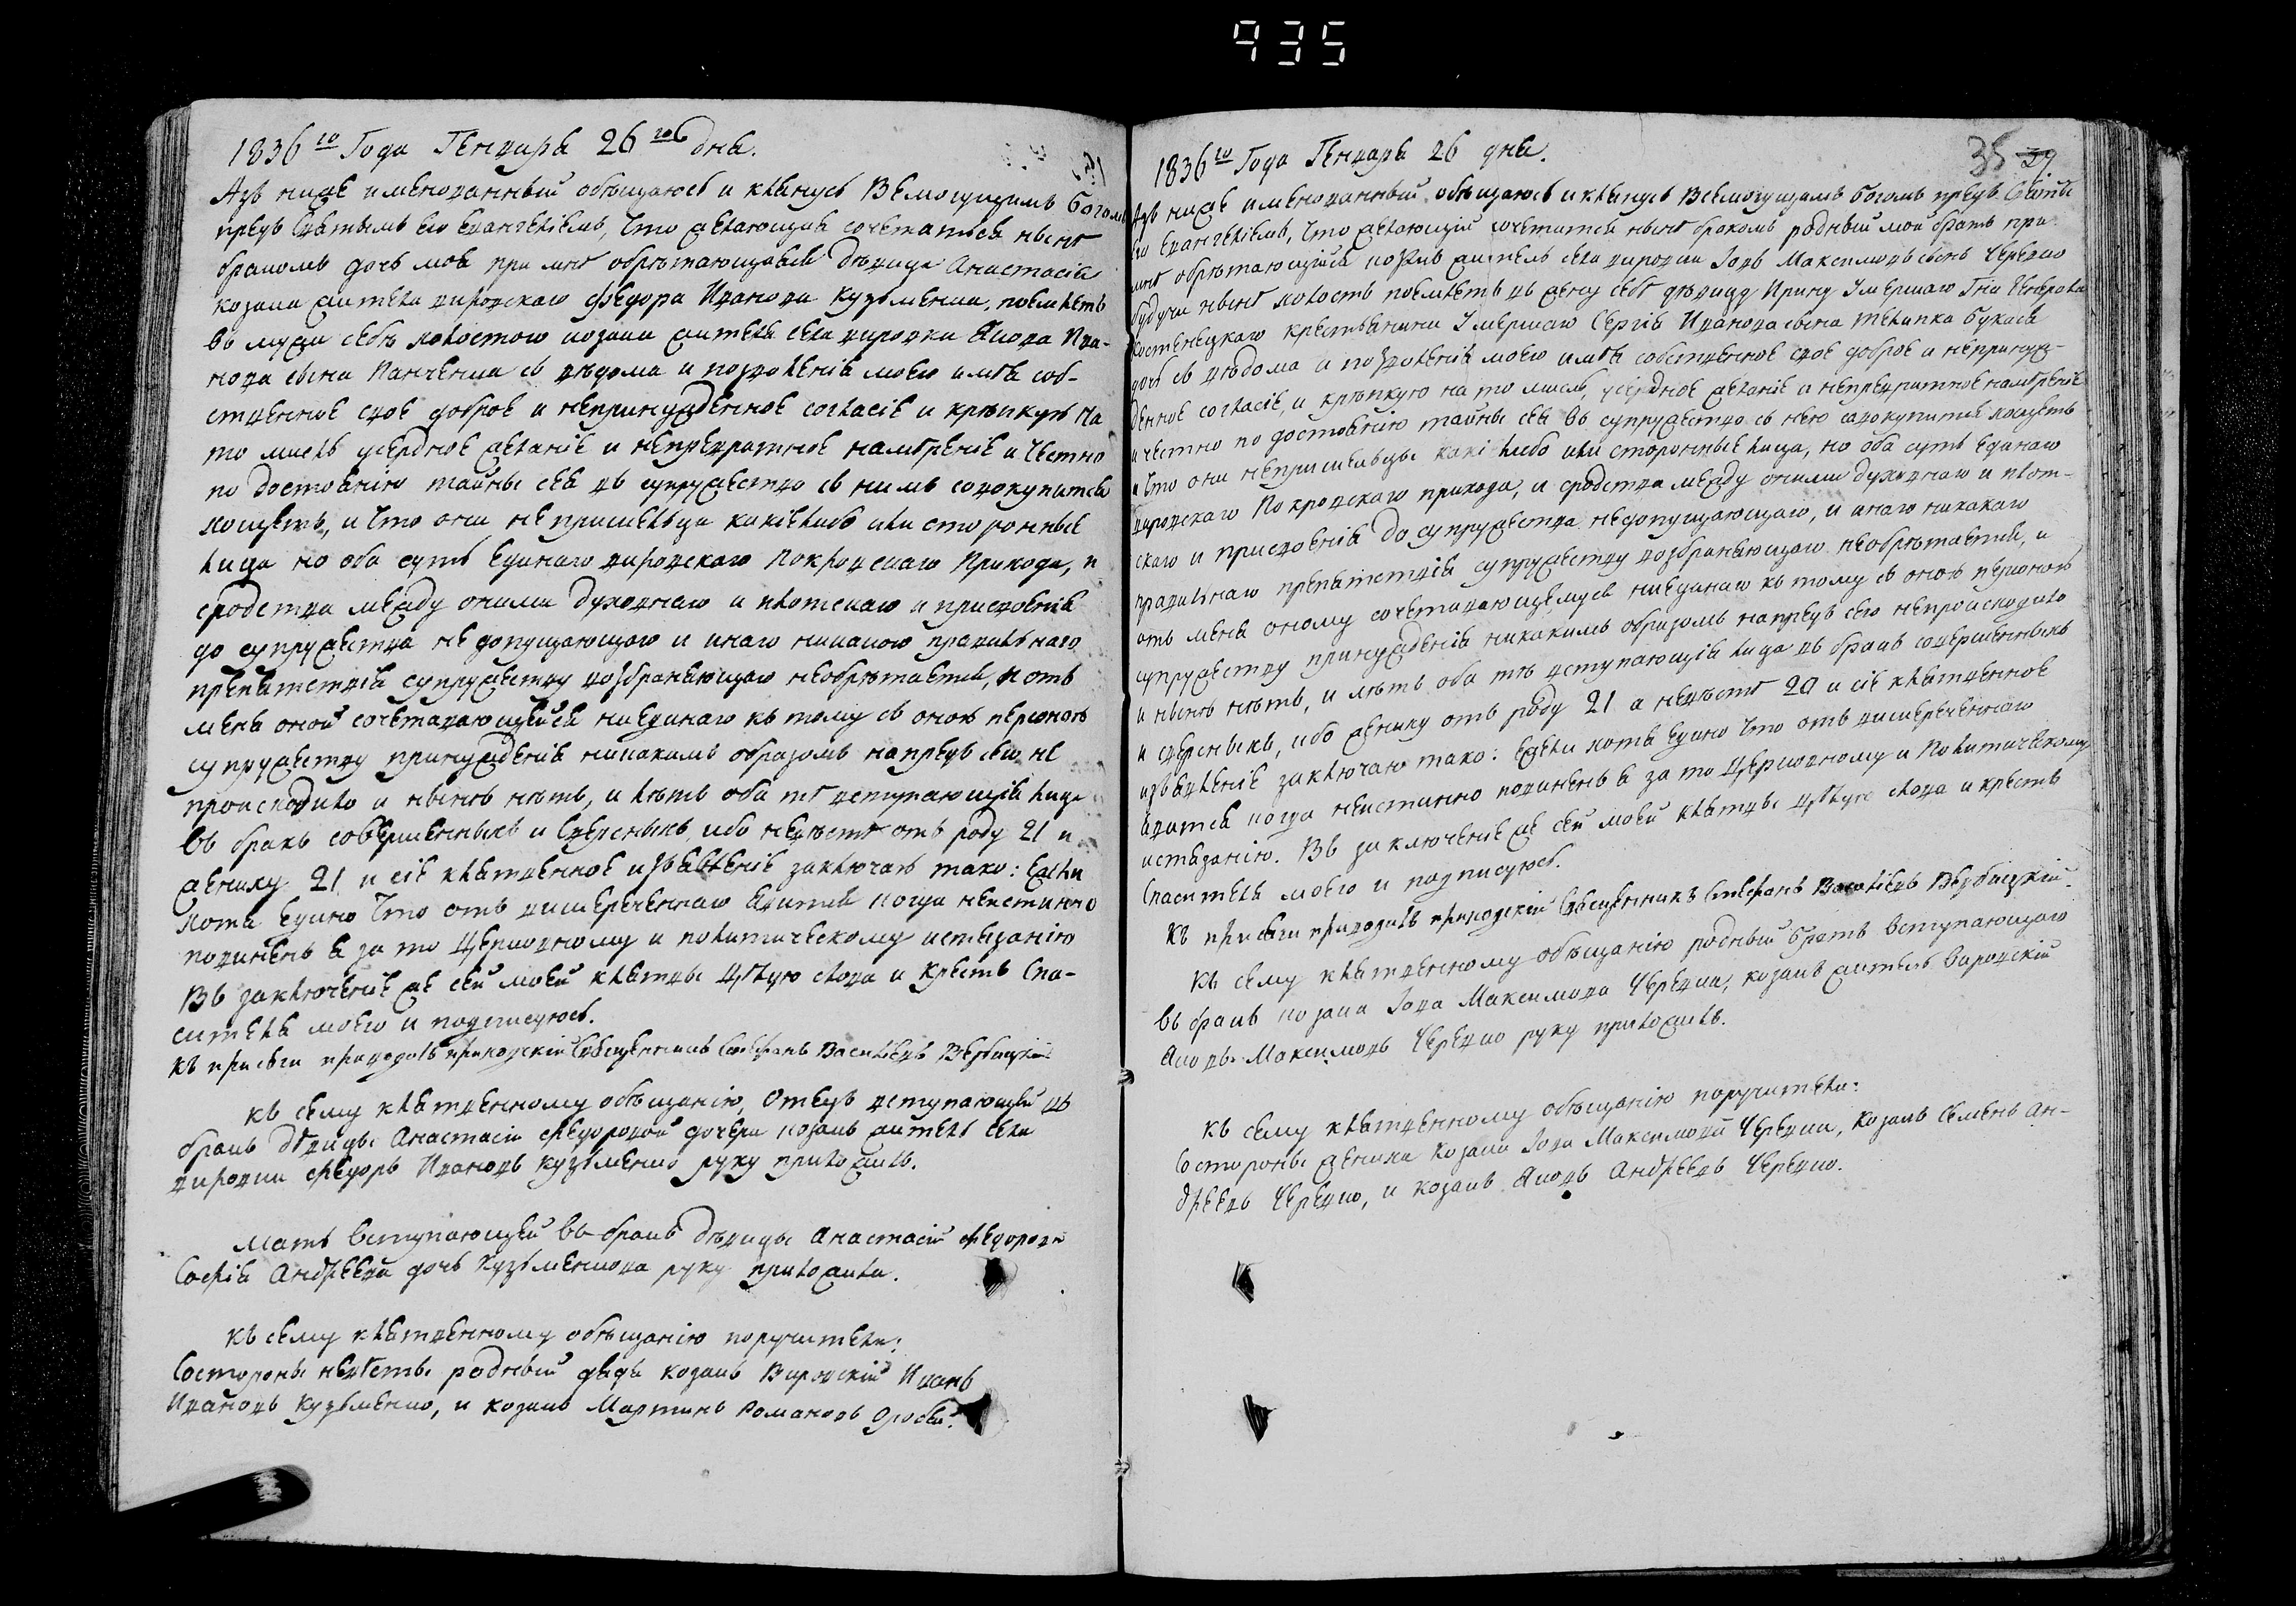 935
1836го Года Генваря 26го дня.
Азъ ниже имянованный обѣщаюсъ и клянусъ Всемогущимъ Богомъ
предъ святымъ его Евангелиемъ, что желающая сочетатся нынѣ
бракомъ дочь моя при мнѣ обрѣтающаяся дѣвица Анастасія
козака жителя вировскаго Федора Иванова Кузьменка, поемлетъ
въ мужи себѣ холостого козака жителя села вировки Якова Ива-
нова сына Панченка съ вѣдома и позволенія моего имѣя соб-
ственное свое доброе и непринужденное согласіе и крѣпкую на
то мысль усердное желаніе и непревратное намѣреніе и честно
по достоянію тайны сея въ супружество съ нимъ совокупится
хощетъ, и что они не пришельци какіелибо или сторонные
лица но оба суть единаго вировскаго Покровскаго Прихода, и
сродства между оними духовнаго и плотскаго и присвоенія
до супружества не допущающаго и инаго никакого правильнаго
препятствія супружеству возбраняющаго необрѣтается, и отъ
меня оной сочетавающейся ниединаго къ тому съ оною персоною
супружеству принужденія никакимъ образомъ напредъ сего не
происходило и нынѣ нѣтъ, и лѣтъ оба тѣ вступающія лица
въ бракъ совершенныхъ и сверсныхъ ибо невѣстѣ отъ роду 21 и
жениху 21 и сіе клятвенное изъявленіе заключаю тако: Ежели
хотя едино что отъ вишереченнаго явится когда неистинно
повиненъ я за то церковному и политическому истязанію
Въ заключеніе же сей моей клятвы цѣлую слова и крестъ Спа-
сителя моего и подписуюсъ.
Къ присяги приводилъ приходскій Священникъ Стефанъ Василіевъ Вербицкій
Къ сему клятвенному обѣщанію, Отецъ вступающей въ
бракъ дѣвицы Анастасіи Федоровой дочери козакъ житель села
вировки Федоръ Ивановъ Кузьменко руку приложилъ.
Мать вступающей въ бракъ дѣвицы Анастасіи Федоровой
Софія Андреева дочь Кузьменкова руку приложила.
Къ сему клятвенному обѣщанію поручители:
Состороны невѣсты родный дядя козакъ Вировскій Иванъ
Ивановъ Кузьменко, и козакъ Мартинъ Романовъ
35 39
1836го Года Генваря 26 дня.
Азъ ниже имянованный обѣщаюсъ и клянусъ Всемогущимъ Богомъ предъ Святымъ
его Евангеліемъ, что желающій сочетатся нынѣ бракомъ родный мой братъ при
мнѣ обрѣтающійся козакъ житель села вировки Іовъ Максимовъ сынъ Черевко
будучи нынѣ холостъ поемлетъ въ жену себѣ дѣвицу Ирину Умершаго Гна Генерала
Костенецкаго крестьянина Умершаго Сергія Иванова сына
дочь съ вѣдома и позволенія моего имѣя собственное свое доброе и непринуж-
денное согласіе, и крѣпкую на то мысль, усердное желаніе и непревратное намѣреніе
и честно по достоянію тайны сея въ супружество съ нею совокупится хощетъ
и что они непришельцы какі либо или сторонные лица, но оба суть единаго
вировскаго Покровскаго прихода, и сродства между оними духовнаго и плот-
скаго и присвоенія до супружества недопущающаго, и инаго никакаго
правильнаго препятствія супружеству возбраняющаго необрѣтается, и
отъ меня оному сочетавающемуся ниединаго къ тому съ оною персоною
супружеству принужденія никакимъ образомъ напредъ сего непроисходило
и нынѣ нѣтъ, и лѣтъ оба тѣ вступающія лица въ бракъ совершенныхъ
и сверсныхъ, ибо жениху отъ роду 21 а невѣстѣ 20 и сіе клятвенное
изъявленіе заключаю тако: Ежели хотя едино что отъ вишереченнаго
явится когда неистинно повиненъ я за то церковному и Политическому
истязанію. Въ заключеніе же сей моей клятвы цѣлую слова и крестъ
Спасителя моего и подписуюсъ.
Къ присяги приводилъ приходскій Священникъ Стефанъ Василіевъ Вербицкій.
Къ сему клятвенному обѣщанію родный братъ вступающаго
въ бракъ козака Іова Максимова Черевка, козакъ житель вировскій
Яковъ Максимовъ Черевко руку приложилъ.
Къ сему клятвенному обѣщанію поручители:
Состороны жениха козака Іова Максимова Черевка, козакъ Семенъ Ан-
дреевъ Черевко, и козакъ Яковъ Андреевъ Черевко.